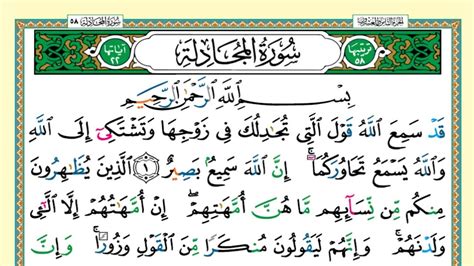 سورة المجادلة ٥٨
الجزء الثامن والعشرون
آياتها ٢٢
سُورَةُ المُجَادلَة
ترتيبها ٥٨
بِسْمِ اللَّهِ الرَّحْمَٰنِ الرَّحِيمِ
قَدْ سَمِعَ اللَّهُ قَوْلَ الَّتِي تُجَٰدِلُكَ فِي زَوْجِهَا وَتَشْتَكِيٓ إِلَى اللَّهِ
وَاللَّهُ يَسْمَعُ تَحَاوُرَكُمَآ ۚ إِنَّ اللَّهَ سَمِيعٌۢ بَصِيرٌ ١ الَّذِينَ يُظَٰهِرُونَ
مِنكُم مِّن نِّسَآئِهِم مَّا هُنَّ أُمَّهَٰتِهِمْ ۖ إِنْ أُمَّهَٰتُهُمْ إِلَّا الَّٰٓـِٔي
وَلَدْنَهُمْ ۚ وَإِنَّهُمْ لَيَقُولُونَ مُنكَرًا مِّنَ الْقَوْلِ وَزُورًا ۚ وَإِنَّ